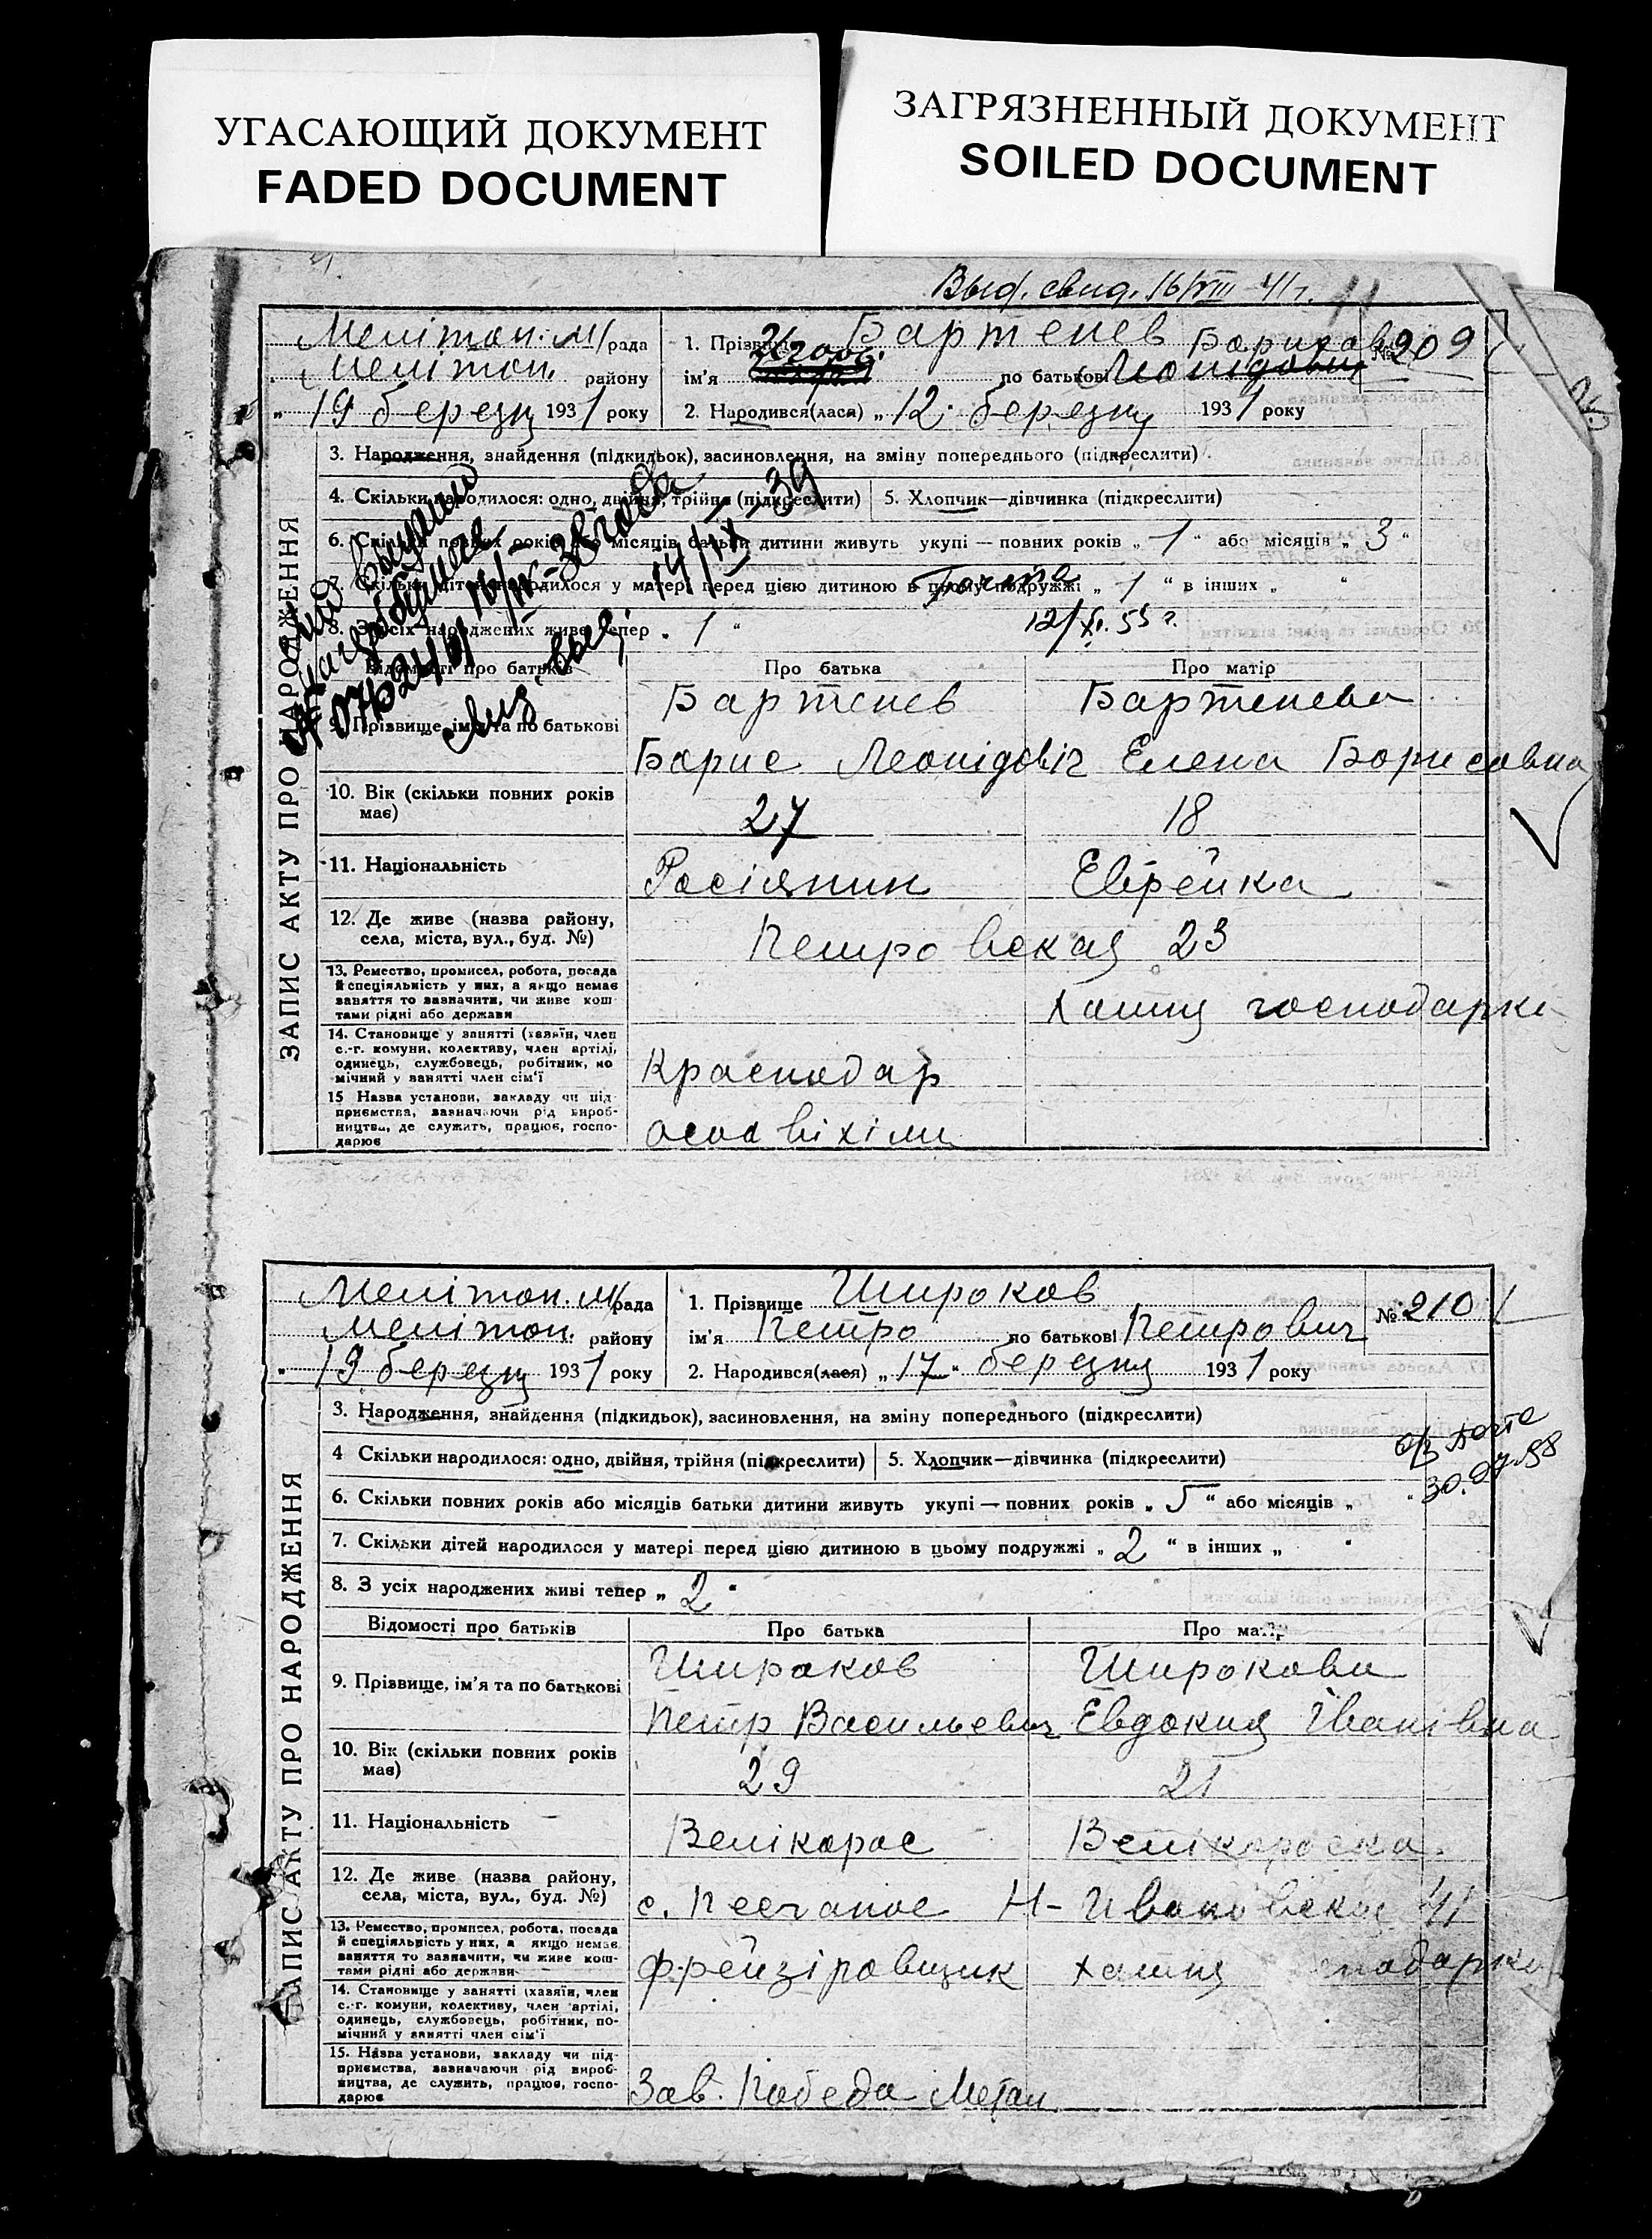 УГАСАЮЩИЙ ДОКУМЕНТ
FADED DOCUMENT
ЗАГРЯЗНЕННЫЙ ДОКУМЕНТ
SOILED DOCUMENT
Выд. свид. 16/VIII-41 г.
ЗАПИС АКТУ ПРО НАРОДЖЕННЯ
Мелітоп. м/рада
Мелітоп. району
„19 березня 1931 року
1. Прізвище Бартенев № 209
ім'я по батькові Борисов
2. Народився(лася) „12" березня 1931 року
3. Народження, знайдення (підкидьок), засиновлення, на зміну попереднього (підкреслити)
4. Скільки народилося: одно, двійня, трійня (підкреслити) 5. Хлопчик—дівчинка (підкреслити)
6. Скільки повних років або місяців батьки дитини живуть укупі — повних років „1" або місяців „3"
7. Скільки дітей народилося у матері перед цією дитиною в цьому подружжі „1" в інших „ "
8. З усіх народжених живі тепер „1"
12/XI.53 г.
14/IX-39
Відомості про батьків Про батька Про матір
9. Прізвище, ім'я та по батькові
Бартенев Бартенева
Борис Леонідовіч Елена Борисовна
10. Вік (скільки повних років має) 27 18
11. Національність Росіянин Еврейка
12. Де живе (назва району, села, міста, вул., буд. №) Петровская 23
13. Ремество, промисел, робота, посада й спеціяльність у них, а якщо немає заняття то зазначити, чи живе коштами рідні або держави
Хатня господарка
14. Становище у занятті (хазяїн, член с.-г. комуни, колективу, член артілі, одинець, службовець, робітник, помічний у занятті член сім'ї
Краснодар
15 Назва установи, закладу чи підприємства, зазначаючи рід виробництва, де служить, працює, господарює
осоавіхіми
ЗАПИС АКТУ ПРО НАРОДЖЕННЯ
Мелітоп. м/рада
Мелітоп. району
„19 березня 1931 року
1. Прізвище Широков № 210
ім'я Петро по батькові Петрович
2. Народився(лася) „17" березня 1931 року
3. Народження, знайдення (підкидьок), засиновлення, на зміну попереднього (підкреслити)
4 Скільки народилося: одно, двійня, трійня (підкреслити) 5. Хлопчик—дівчинка (підкреслити)
6. Скільки повних років або місяців батьки дитини живуть укупі — повних років „5" або місяців „ "
30.07.58
7. Скільки дітей народилося у матері перед цією дитиною в цьому подружжі „2" в інших „ "
8. З усіх народжених живі тепер „2"
Відомості про батьків Про батька Про матір
9. Прізвище, ім'я та по батькові
Широков Широкова
Петр Васильевич Евдокия Іванівна
10. Вік (скільки повних років має) 29 21
11. Національність Велікорос Велікороска.
12. Де живе (назва району, села, міста, вул., буд. №) с. Песчаное Н-Ивановская 41
13. Ремество, промисел, робота, посада й спеціяльність у них, а якщо немає заняття то зазначити, чи живе коштами рідні або держави
Фрейзіровщик хатня господарка
14. Становище у занятті (хазяїн, член с.-г. комуни, колективу, член артілі, одинець, службовець, робітник, помічний у занятті член сім'ї
15. Назва установи, закладу чи підприємства, зазначаючи рід виробництва, де служить, працює, господарює
Зав. Победа Метал